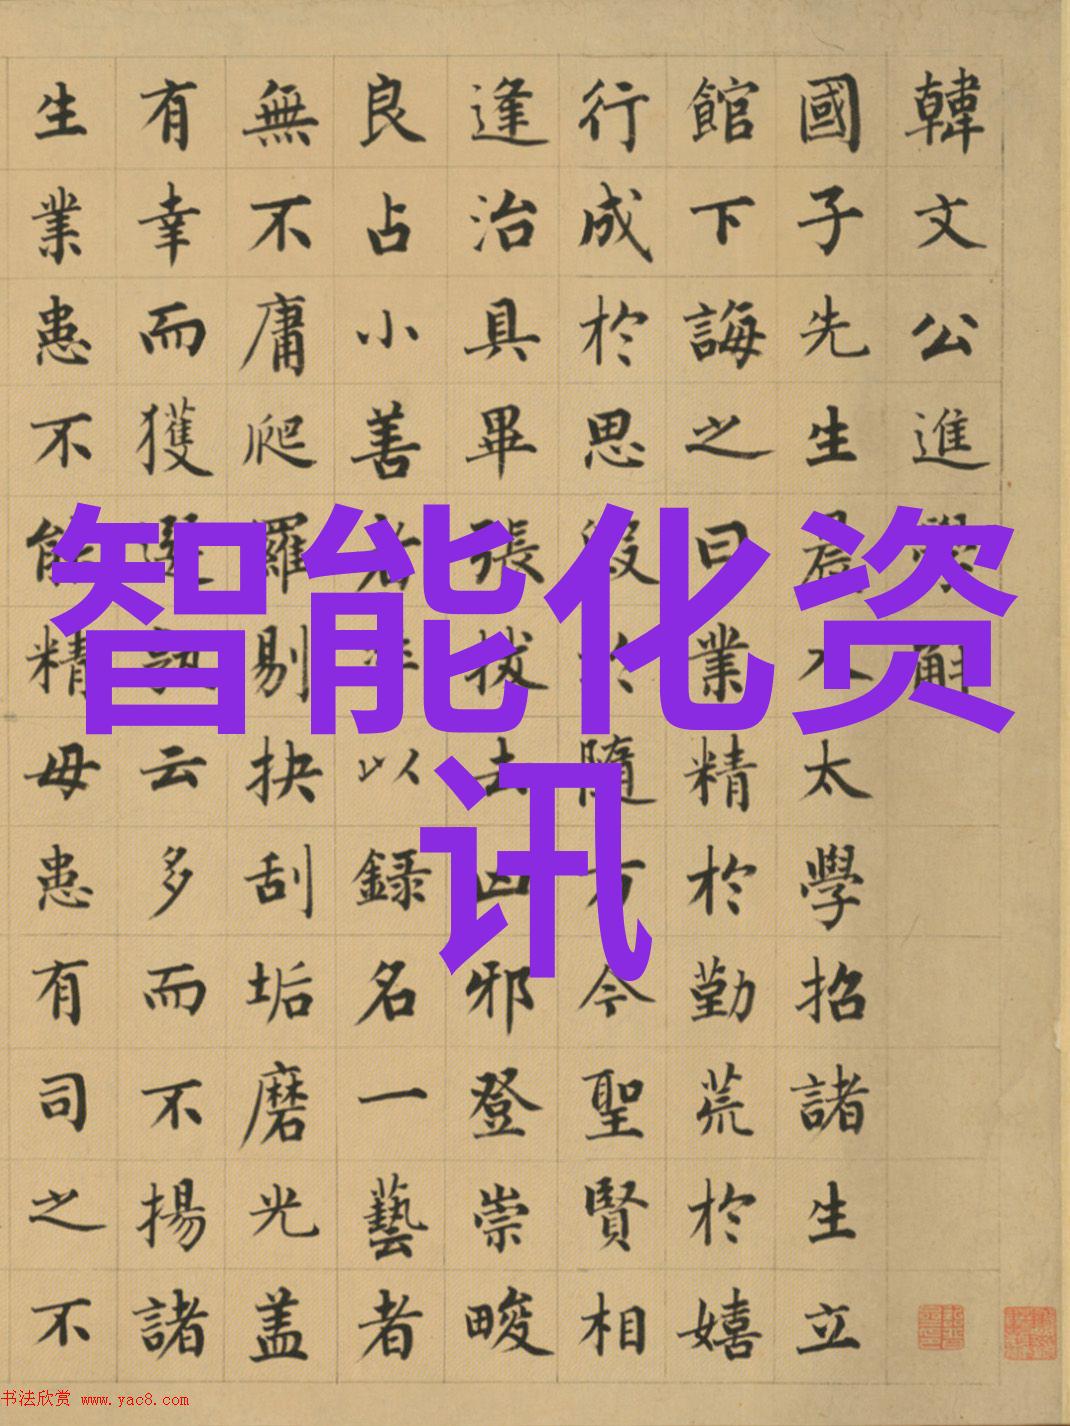 韓文公進學解
國子先生晨入太學招諸生立
館下誨之曰業精於勤荒於嬉
行成於思毀於隨方今聖賢相
逢治具畢張拔去凶邪登崇畯
良占小善者率以録名一藝者
無不庸爬羅剔抉刮垢磨光盖
有幸而獲選孰云多而不揚諸
生業患不能精毋患有司之不
智能化资
讯
书法欣赏 www.yac8.com